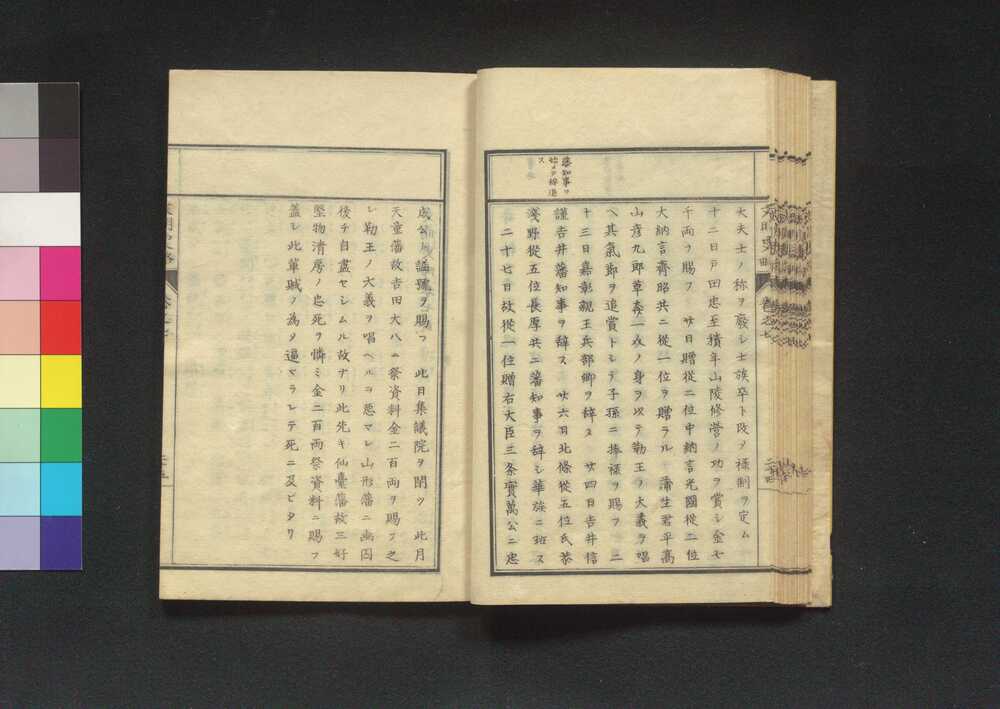 藩知事ヲ
始メテ辞退
ス
大夫士ノ称ヲ廢シ士族卒ト改ヲ禄制ヲ定ム
十二日戸田忠至積年山陵修営ノ功ヲ賞シ金七
千両ヲ賜フ 廿日贈從二位中納言光國從二位
大納言齊昭共ニ從一位ヲ贈ラル 蒲生君平髙
山彦九郎草奔一介ノ身ヲ以テ勤王ノ大義ヲ唱
ヘ其氣節ヲ追賞トシテ子孫ニ捧禄ヲ賜フ 二
十三日嘉彰親王兵部卿ヲ辞ス 廿四日吉井信
謹吉井藩知事ヲ辞ス 廿六日北條從五位氏恭
淺野從五位長厚共ニ藩知事ヲ辞シ華族ニ班ス
二十七日故從一位贈右大臣三条實萬公ニ忠
成公ノ諡號ヲ賜フ 此日集議院ヲ閉ツ 此月
天童藩故吉田大八ニ祭資料金二百両ヲ賜フ之
レ勤王ノ大義ヲ唱ヘルヲ悪マレ山形藩ニ幽囚
後チ自盡セシムル故ナリ此先キ仙臺藩故三好
堅物清房ノ忠死ヲ憐ミ金二百両祭資料ニ賜フ
蓋シ此輩賊ノ為タ逼マラレテ死ニ及ヒタリ